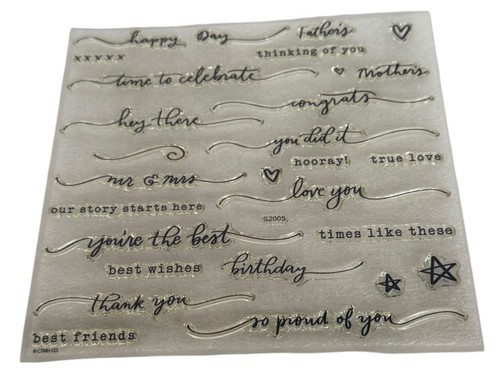 happy Day Father's
xxxxx thinking of you
time to celebrate Mother's
congrats
hey there
you did it
hooray! true love
mr & mrs
love you
our story starts here
S2005
you're the best times like these
best wishes birthday
thank you
so proud of you
best friends